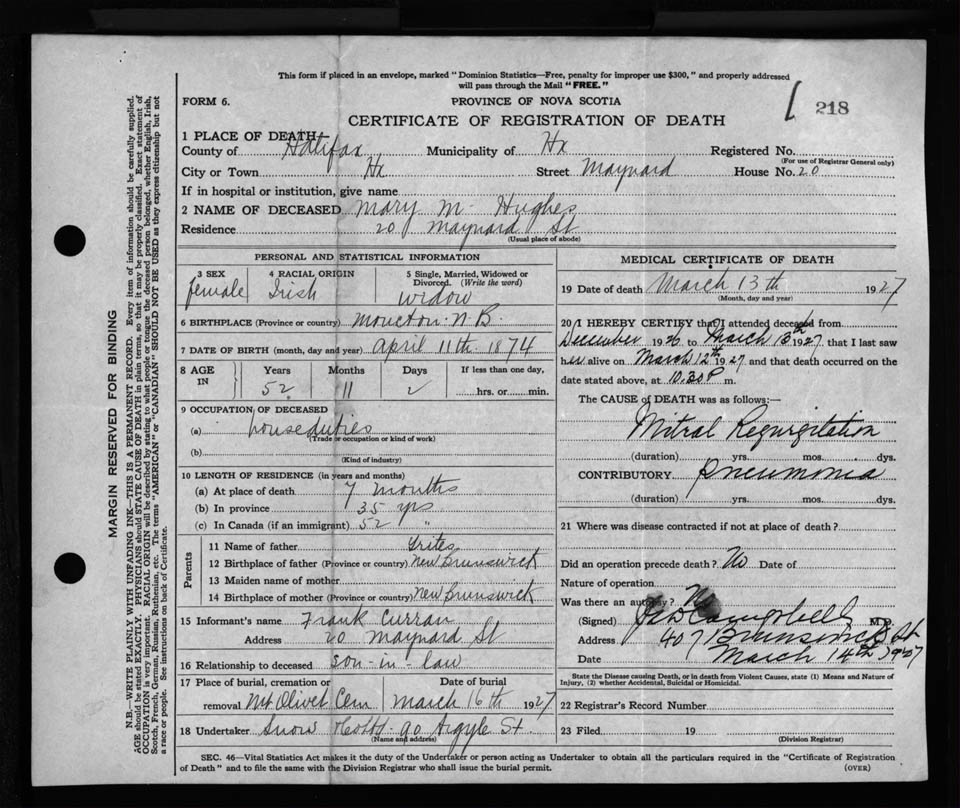 This form if placed in an envelope, marked "Dominion Statistics—Free, penalty for improper use $300," and properly addressed
will pass through the Mail "FREE."
FORM 6.
PROVINCE OF NOVA SCOTIA
218
CERTIFICATE OF REGISTRATION OF DEATH
1 PLACE OF DEATH
County of Halifax Municipality of Hx Registered No.
(For use of Registrar General only)
City or Town Hx Street Maynard House No. 20
If in hospital or institution, give name
2 NAME OF DECEASED Mary M. Hughes
Residence 20 Maynard St
(Usual place of abode)
PERSONAL AND STATISTICAL INFORMATION
3 SEX 4 RACIAL ORIGIN 5 Single, Married, Widowed or Divorced. (Write the word)
female Irish widow
6 BIRTHPLACE (Province or country) Moncton. N. B.
7 DATE OF BIRTH (month, day and year) April 11th. 1874
8 AGE IN Years Months Days If less than one day,
52 11 2 hrs. or min.
9 OCCUPATION OF DECEASED
(a) houseduties
(Trade or occupation or kind of work)
(b)
(Kind of industry)
10 LENGTH OF RESIDENCE (in years and months)
(a) At place of death 7 months
(b) In province 35 yrs
(c) In Canada (if an immigrant) 52 "
Parents
11 Name of father Trites
12 Birthplace of father (Province or country) New Brunswick
13 Maiden name of mother
14 Birthplace of mother (Province or country) New Brunswick
15 Informant's name Frank Curran
Address 20 Maynard St
16 Relationship to deceased son-in-law
17 Place of burial, cremation or Date of burial
removal Mt Olivet Cem. March 16th 1927
18 Undertaker Snow 90 Argyle St.
(Name and address)
MEDICAL CERTIFICATE OF DEATH
19 Date of death March 13th 1927
(Month, day and year)
20 I HEREBY CERTIFY that I attended deceased from
December 1926 to March 13th 1927 that I last saw
her alive on March 12th 1927 and that death occurred on the
date stated above, at 10.30 P m.
The CAUSE of DEATH was as follows:—
Mitral Regurgitation
(duration) yrs. mos. dys.
CONTRIBUTORY Pneumonia
(duration) yrs. mos. dys.
21 Where was disease contracted if not at place of death?
Did an operation precede death? No Date of
Nature of operation
Was there an autopsy? No
(Signed) Campbell M.D.
Address 407 Brunswick St
Date March 14th 1927
State the Disease causing Death, or in death from Violent Causes, state (1) Means and Nature of
Injury, (2) whether Accidental, Suicidal or Homicidal.
22 Registrar's Record Number
23 Filed 19
(Division Registrar)
SEC. 46—Vital Statistics Act makes it the duty of the Undertaker or person acting as Undertaker to obtain all the particulars required in the "Certificate of Registration
of Death" and to file the same with the Division Registrar who shall issue the burial permit.
(OVER)
MARGIN RESERVED FOR BINDING
N.B.—WRITE PLAINLY WITH UNFADING INK—THIS IS A PERMANENT RECORD. Every item of information should be carefully supplied.
AGE should be stated EXACTLY. PHYSICIANS should STATE CAUSE OF DEATH in plain terms, so that it may be properly classified. Exact statement of
OCCUPATION is very important. RACIAL ORIGIN will be described by stating to what people or tongue the deceased person belonged, whether English, Irish,
Scotch, French, German, Russian, Ruthenian, etc. The terms "AMERICAN" or "CANADIAN" SHOULD NOT BE USED as they express citizenship but not
a race or people. See instructions on back of Certificate.